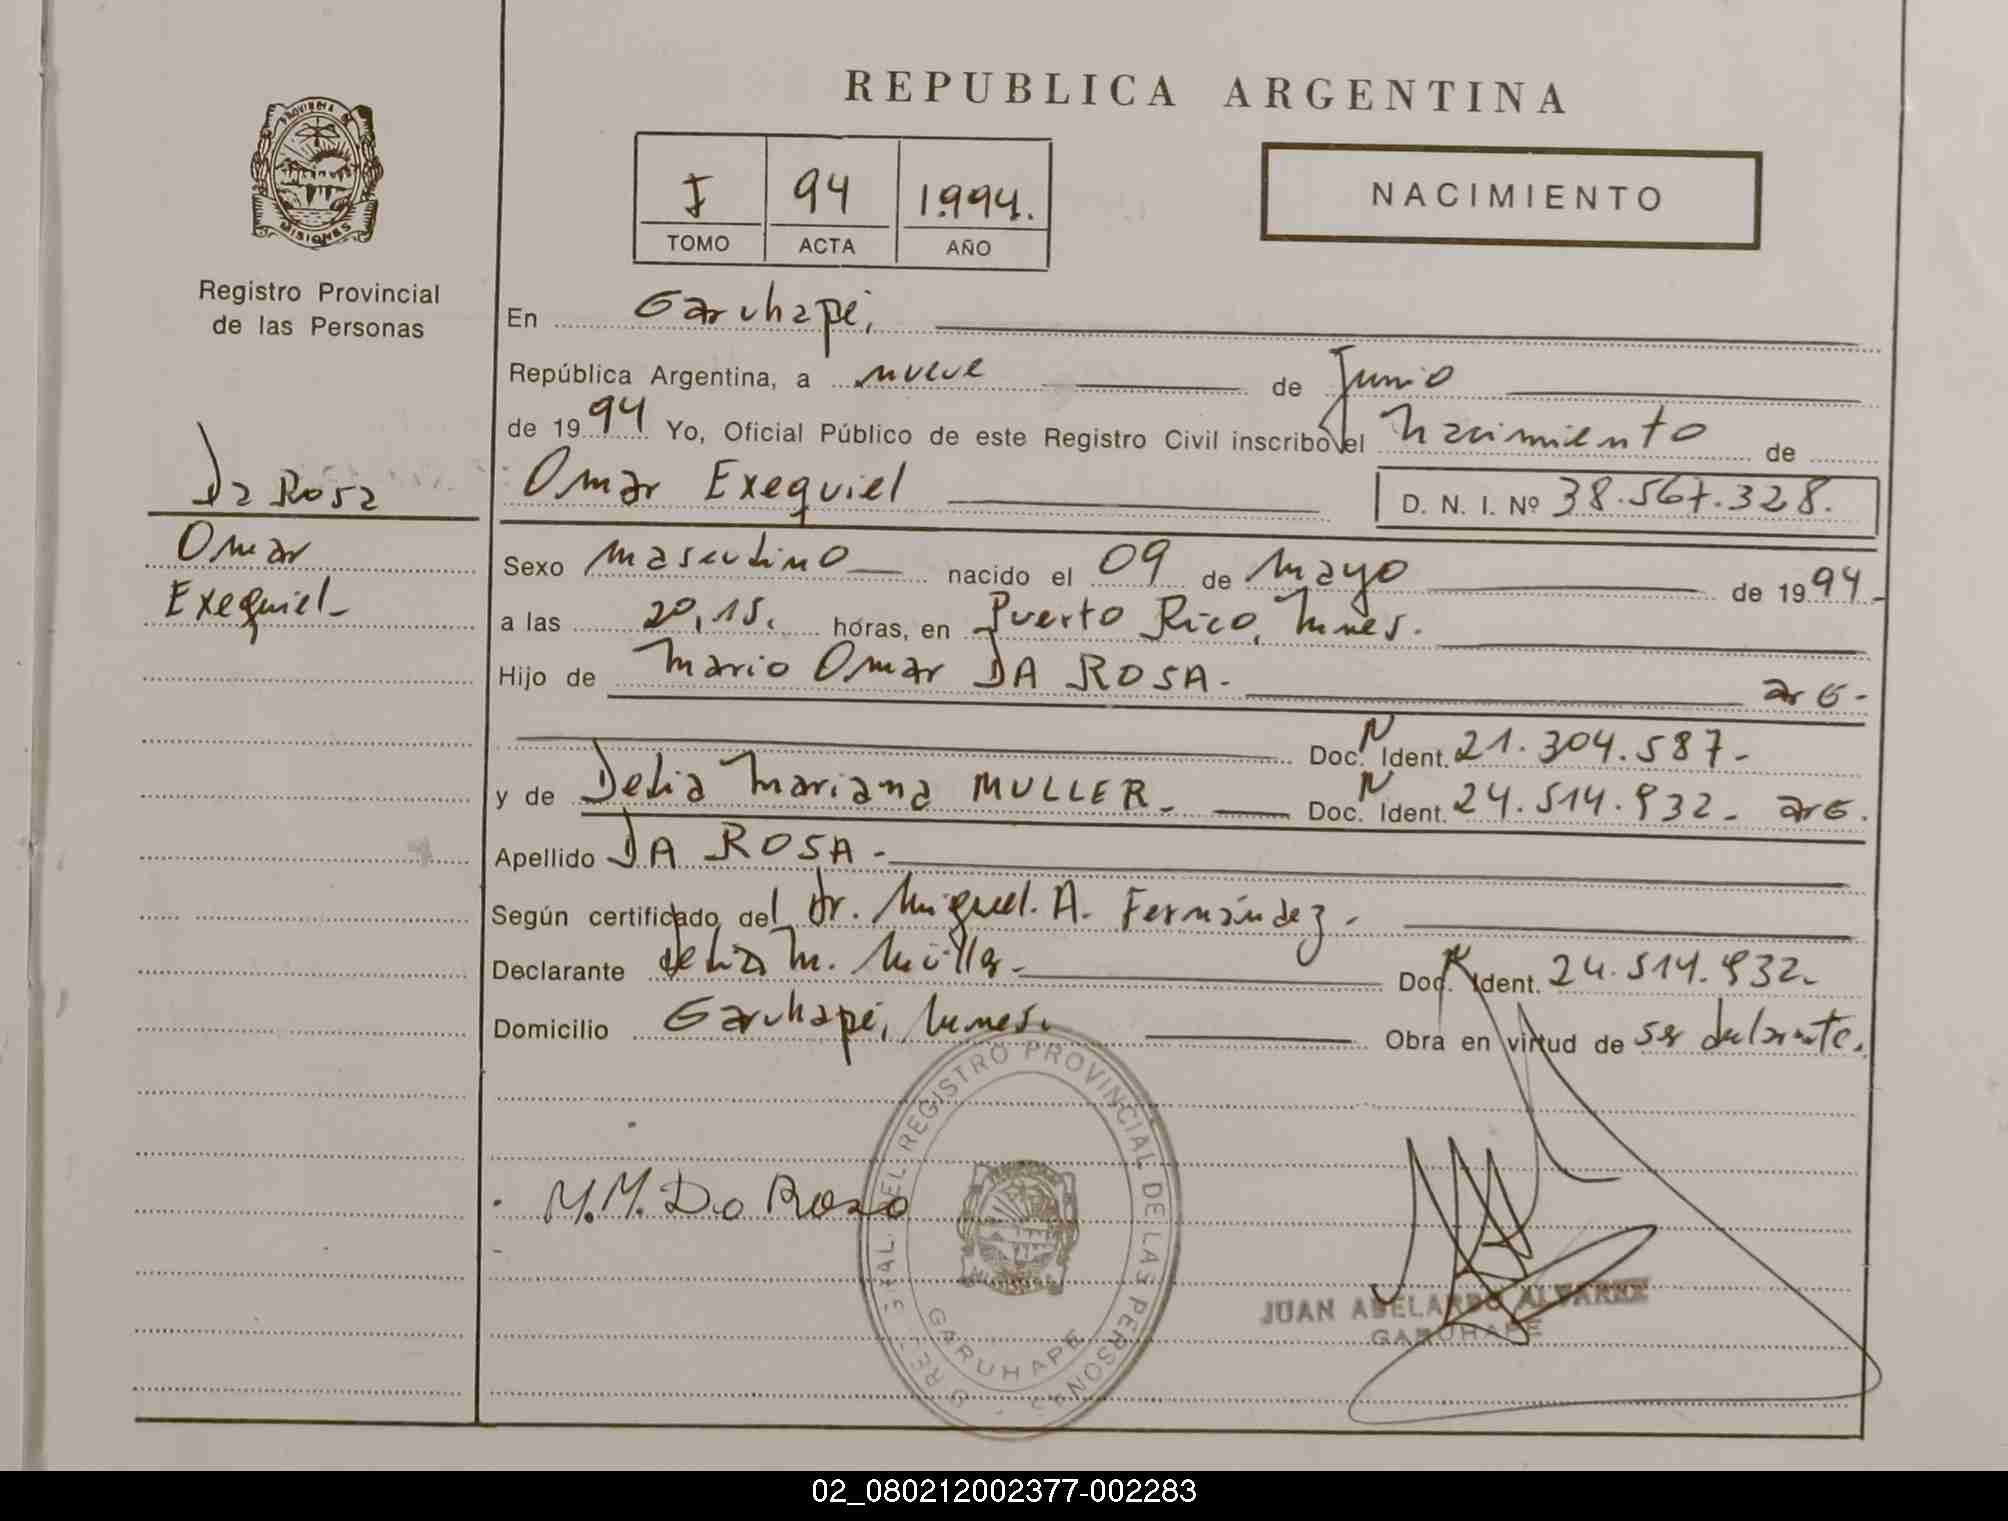 REPUBLICA ARGENTINA
PROVINCIA DE
MISIONES
Registro Provincial
de las Personas
I 94 1.994.
TOMO ACTA AÑO
NACIMIENTO
Da Rosa
Omar
Exequiel-
En Garuhapé,
República Argentina, a nueve de Junio
de 1994 Yo, Oficial Público de este Registro Civil inscribo el nacimiento de
Omar Exequiel D. N. I. Nº 38.567.328.
Sexo masculino nacido el 09 de mayo de 1994.-
a las 20,15. horas, en Puerto Rico, Mnes.
Hijo de Mario Omar DA ROSA.- arg-
Doc. N Ident. 21.304.587-
y de Delia Mariana MULLER- Doc. N Ident. 24.514.932- arg.
Apellido DA ROSA-
Según certificado del dr. Miguel. A. Fernández-
Declarante delia M. Müller- Doc. N Ident. 24.514.932-
Domicilio Garuhapé, Mnes. Obra en virtud de ser declarante.
M.M. Da Rosa
REGISTRO PROVINCIAL DE LAS PERSONAS
GARUHAPE
JUAN ABELARDO ALVAREZ
GARUHAPE
02_080212002377-002283